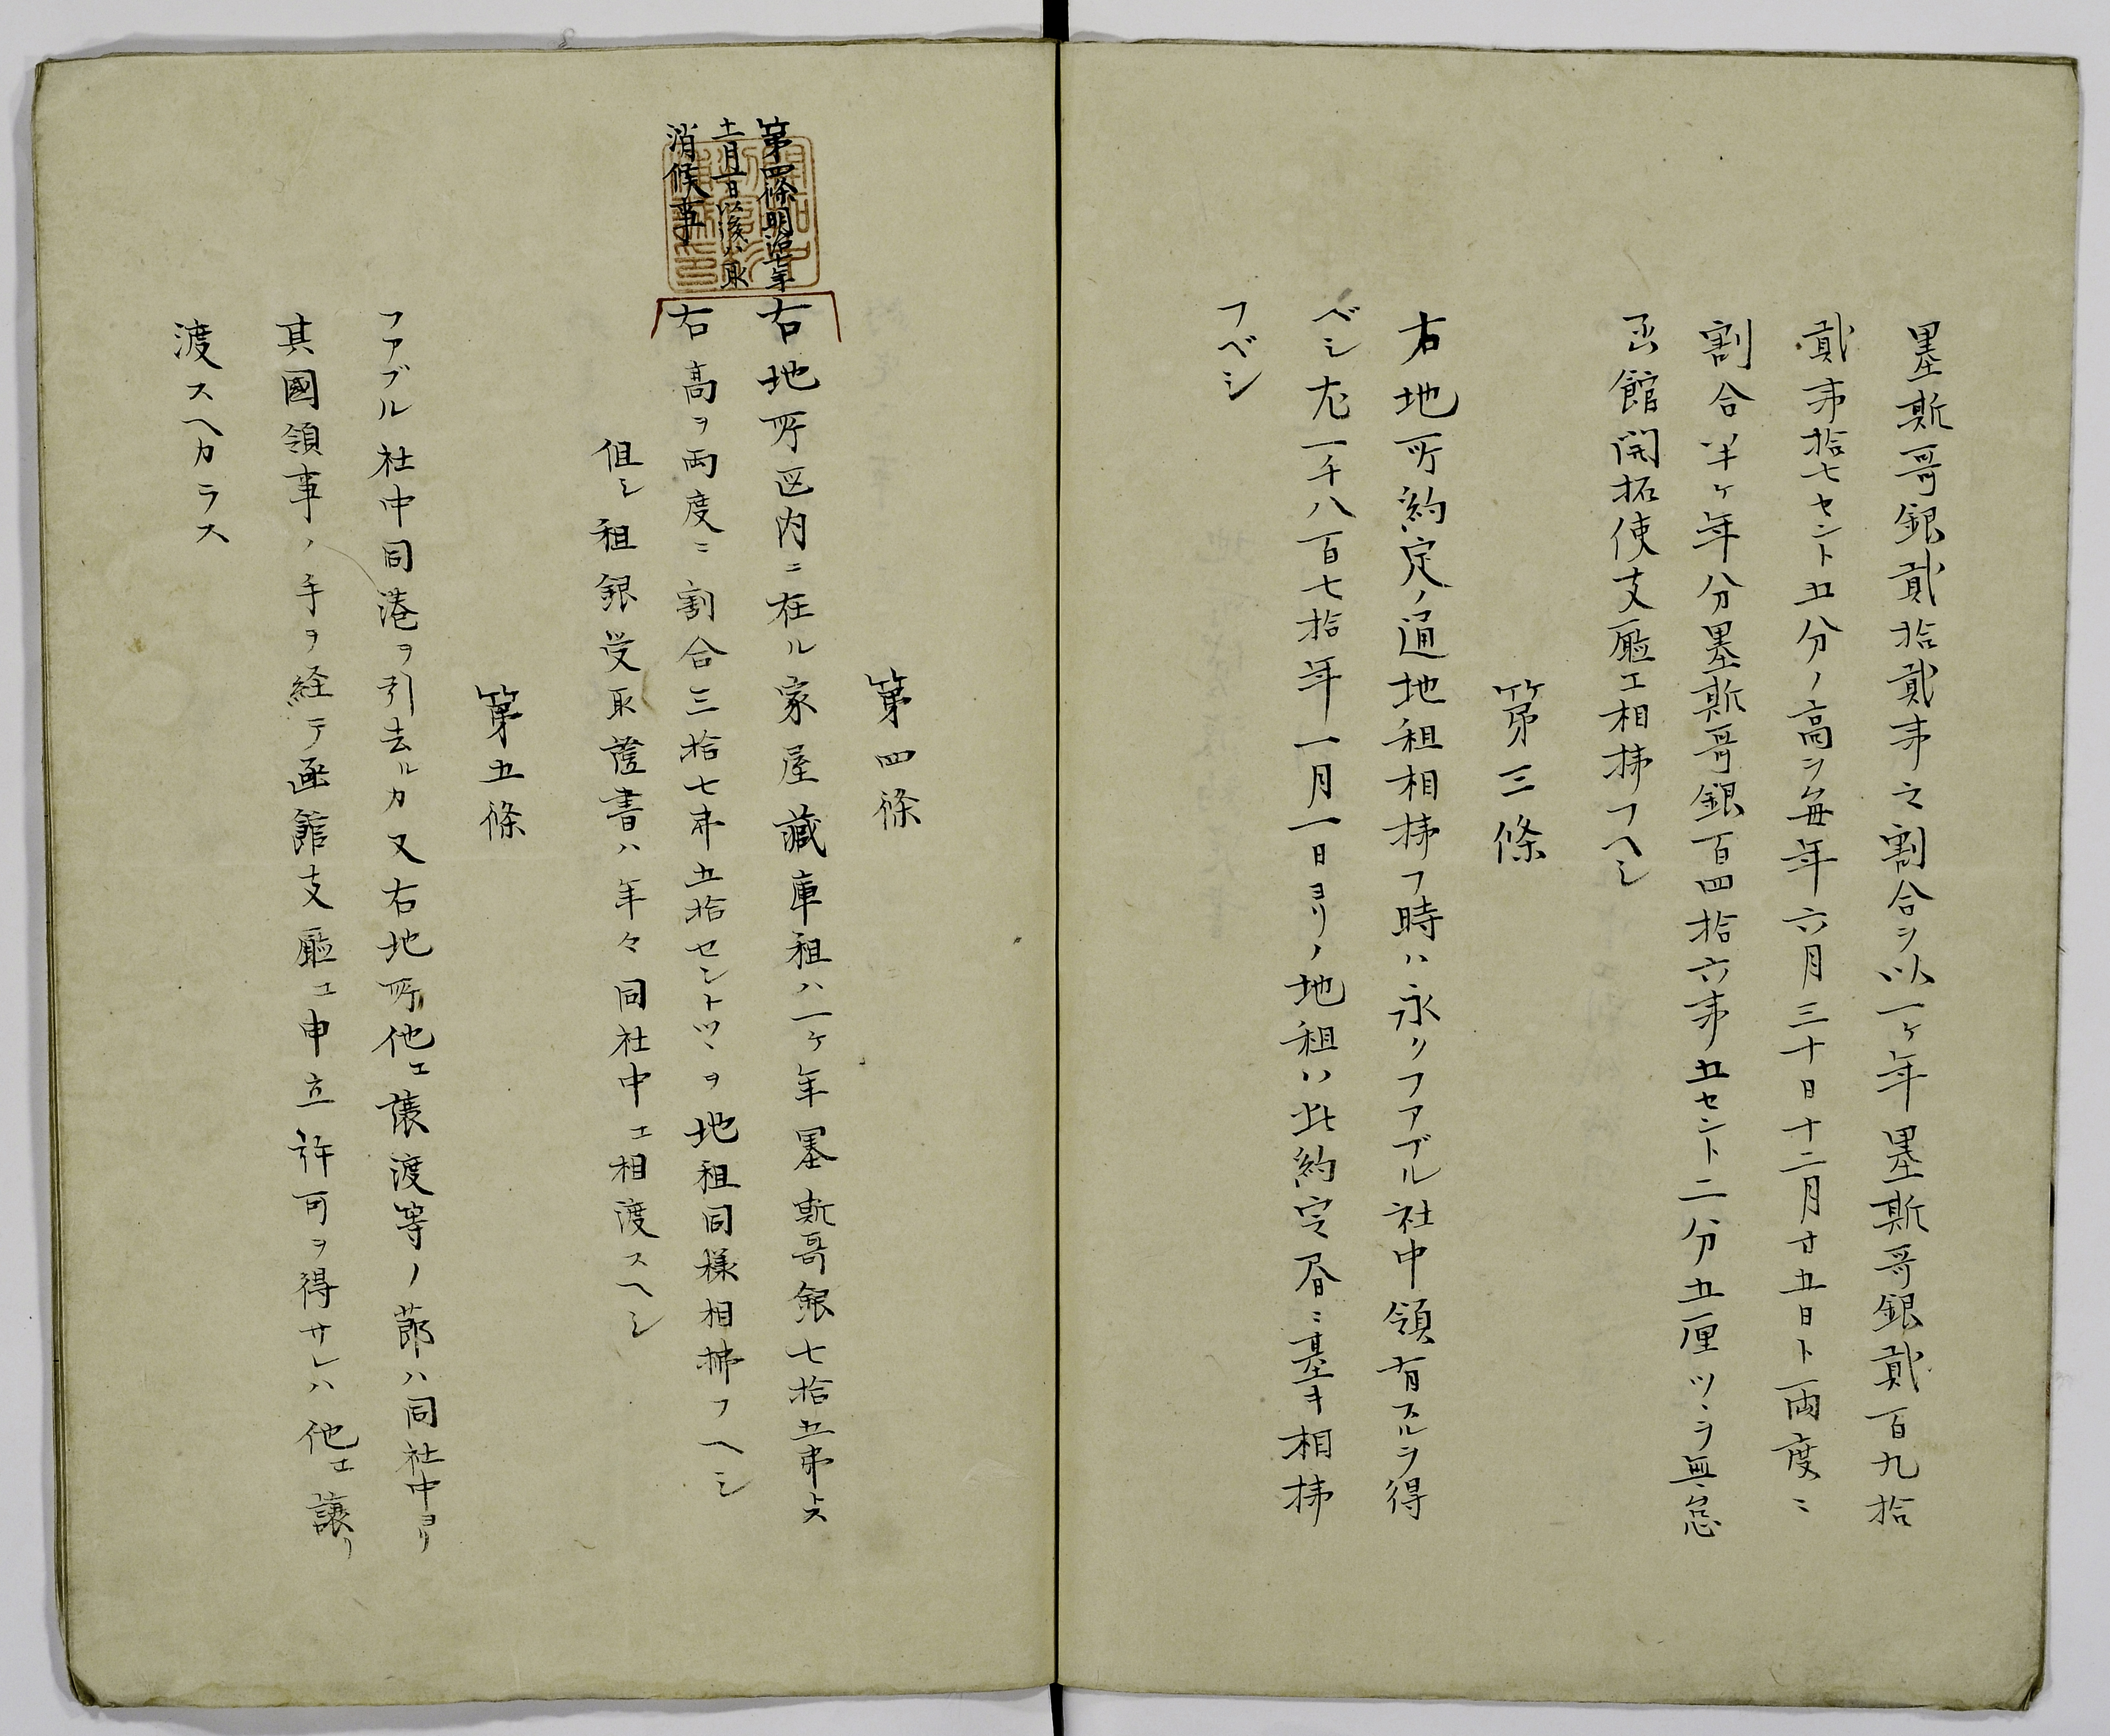 墨斯哥銀貳拾貳弗之割合ヲ以一ケ年墨斯哥銀貳百九拾
貳弗拾七セント五分ノ高ヲ毎年六月三十日十二月廿五日ト両度ニ
割合半ケ年分墨斯哥銀百四拾六弗五セント二分五厘ツヽヲ無怠
函館開拓使支廳エ相拂フヘシ
第三條
右地所約定ノ通地租相拂フ時ハ永クファブル社中領有スルヲ得
ベシ尤一千八百七拾年一月一日ヨリノ地租ハ此約定眉ニ基キ相拂
フベシ
第四條
第四條明治七年
十二月一日以後ハ取
消候事
右地所区内ニ在ル家屋藏庫租ハ一ケ年墨斯哥銀七拾五弗トス
右高ヲ両度ニ割合三拾七弗五拾セントツヽヲ地租同様相拂フヘシ
但シ租銀受取證書ハ年々同社中エ相渡スヘシ
第五條
ファブル社中同港ヲ引去ルカ又右地所他エ譲渡等ノ節ハ同社中ヨリ
其國領事ノ手ヲ経テ函館支廳エ申立許可ヲ得サレハ他エ譲リ
渡スヘカラス